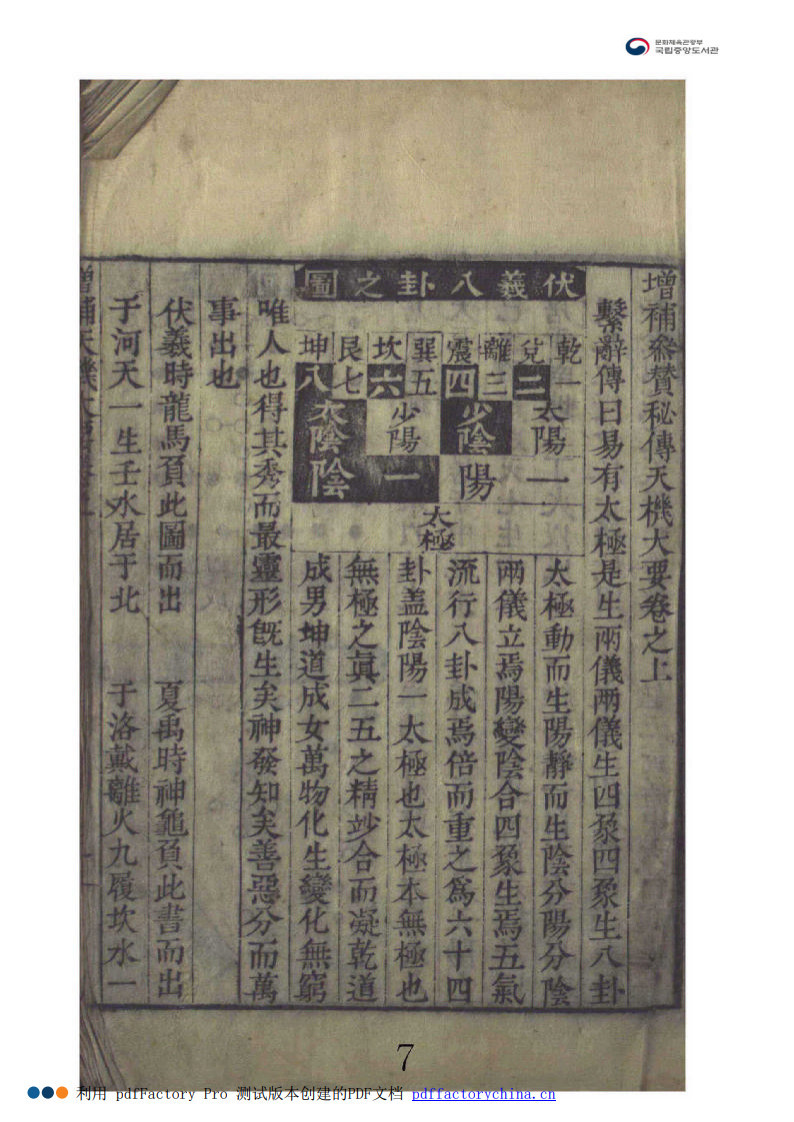 문화체육관광부
국립중앙도서관
增補叅賛秘傳天機大要卷之上
繫辭傳曰易有太極是生兩儀兩儀生四象四象生八卦
伏羲八卦之圖
乾一 兌二 離三 震四 巽五 坎六 艮七 坤八
太陽 少陰 少陽 太陰
一陽 一陰
太極
太極動而生陽靜而生陰分陽分陰
兩儀立焉陽變陰合四象生焉五氣
流行八卦成焉倍而重之爲六十四
卦盖陰陽一太極也太極本無極也
無極之眞二五之精竗合而凝乾道
成男坤道成女萬物化生變化無窮
唯人也得其秀而最靈形旣生矣神發知矣善惡分而萬
事出也
伏羲時龍馬負此圖而出 夏禹時神龜負此書而出
于河天一生壬水居于北 于洛戴離火九履坎水一
增補天機大要卷之上
7
利用 pdfFactory Pro 测试版本创建的PDF文档 pdffactorychina.cn